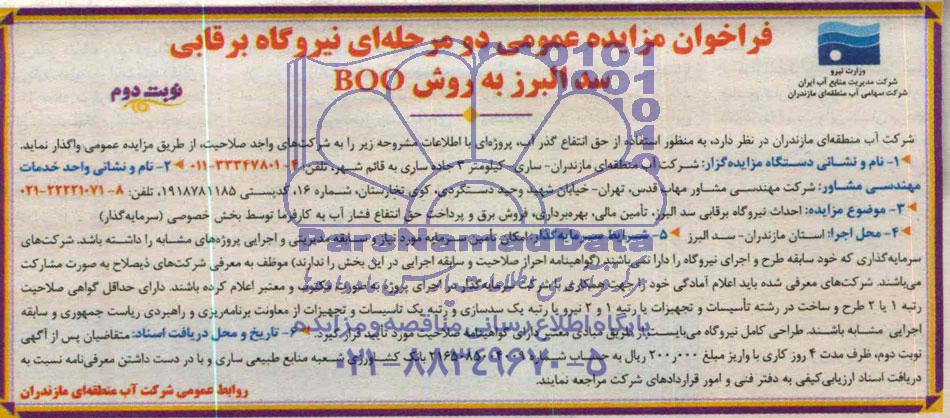 فراخوان مزایده عمومی دو مرحله‌ای نیروگاه برقابی
سد البرز به روش BOO
نوبت دوم
وزارت نیرو
شرکت مدیریت منابع آب ایران
شرکت سهامی آب منطقه‌ای مازندران
شرکت آب منطقه‌ای مازندران در نظر دارد، به منظور استفاده از حق انتفاع گذر آب، پروژه‌ای با اطلاعات مشروحه زیر را به شرکت‌های واجد صلاحیت، از طریق مزایده عمومی واگذار نماید.
۱- نام و نشانی دستگاه مزایده‌گزار: شرکت آب منطقه‌ای مازندران- ساری- کیلومتر ۳ جاده ساری به قائم شهر، تلفن: ۴-۳۳۳۴۷۸۰۱-۰۱۱ ۲- نام و نشانی واحد خدمات
مهندسی مشاور: شرکت مهندسی مشاور مهاب قدس، تهران- خیابان شهید وحید دستگردی، کوی تخارستان، شماره ۱۶، کدپستی ۱۹۱۸۷۸۱۱۸۵، تلفن: ۸-۲۲۲۲۱۰۷۱-۰۲۱
۳- موضوع مزایده: احداث نیروگاه برقابی سد البرز، تأمین مالی، بهره‌برداری، فروش برق و پرداخت حق انتفاع فشار آب به کارفرما توسط بخش خصوصی (سرمایه‌گذار)
۴- محل اجرا: استان مازندران- سد البرز ۵- شرایط سرمایه‌گذار: امکان تأمین سرمایه مورد نیاز و سابقه مدیریتی و اجرایی پروژه‌های مشابه را داشته باشد. شرکت‌های
سرمایه‌گذاری که خود سابقه طرح و اجرای نیروگاه را دارا نمی‌باشند (گواهینامه احراز صلاحیت و سابقه اجرایی در این بخش را ندارند) موظف به معرفی شرکت‌های ذیصلاح به صورت مشارکت
می‌باشند. شرکت‌های معرفی شده باید اعلام آمادگی خود را جهت همکاری با شرکت سرمایه‌گذار در اجرای پروژه به صورت مکتوب و معتبر اعلام کرده باشند. دارای حداقل گواهی صلاحیت
رتبه ۱ یا ۲ طرح و ساخت در رشته تأسیسات و تجهیزات یا رتبه ۱ و ۲ نیرو یا رتبه یک سدسازی و رتبه یک تاسیسات و تجهیزات از معاونت برنامه‌ریزی و راهبردی ریاست جمهوری و سابقه
اجرایی مشابه باشند. طراحی کامل نیروگاه می‌بایست از طریق نهادی معتبر دارای گواهینامه صلاحیت مورد تایید قرار گیرد. ۶- تاریخ و محل دریافت اسناد: متقاضیان پس از آگهی
نوبت دوم، ظرف مدت ۴ روز کاری با واریز مبلغ ۲۰۰٫۰۰۰ ریال به حساب شماره بانک کشاورزی شعبه منابع طبیعی ساری و با در دست داشتن معرفی‌نامه نسبت به
دریافت اسناد ارزیابی‌کیفی به دفتر فنی و امور قراردادهای شرکت مراجعه نمایند.
روابط عمومی شرکت آب منطقه‌ای مازندران
ParsNamadData
پایگاه اطلاع رسانی مناقصه و مزایده
۰۲۱-۸۸۳۴۹۶۷۰-۵